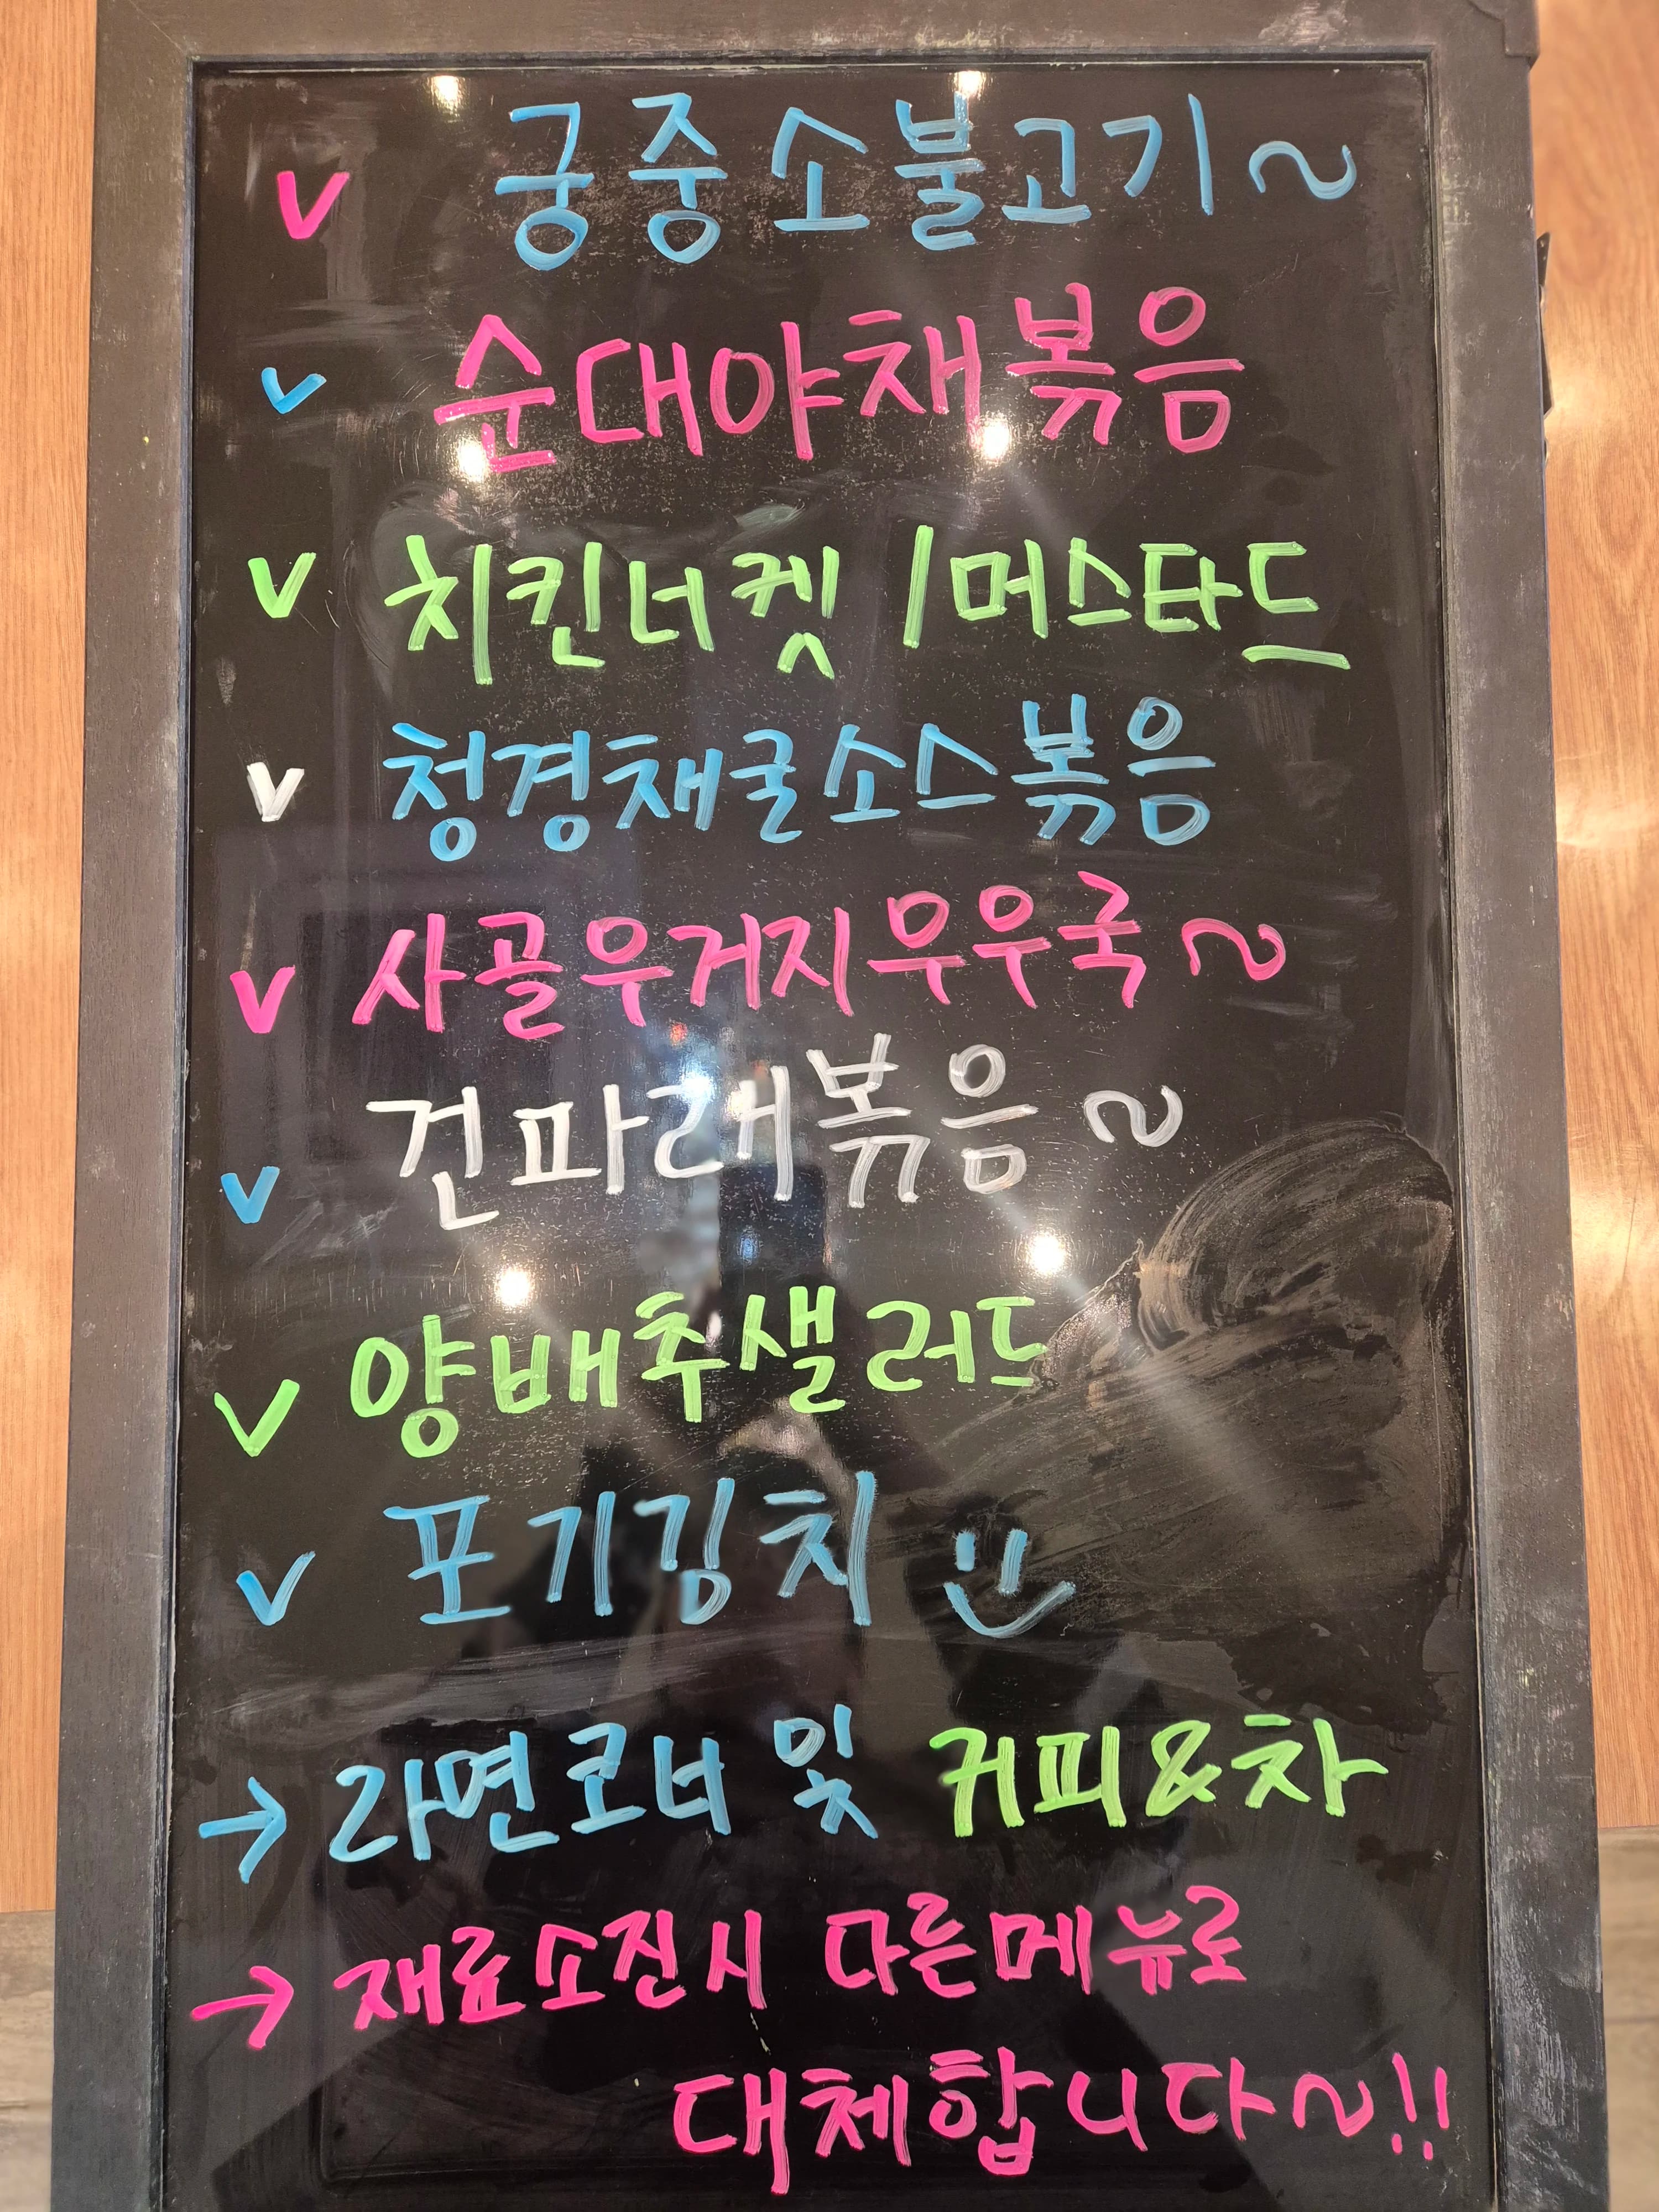 V 궁중소불고기~
V 순대야채볶음
V 치킨너켓/머스타드
V 청경채굴소스볶음
V 사골우거지우우국~
V 건파래볶음~
V 양배추샐러드
V 포기김치
→ 라면코너 및 커피&차
→ 재료소진시 다른메뉴로
대체합니다~!!